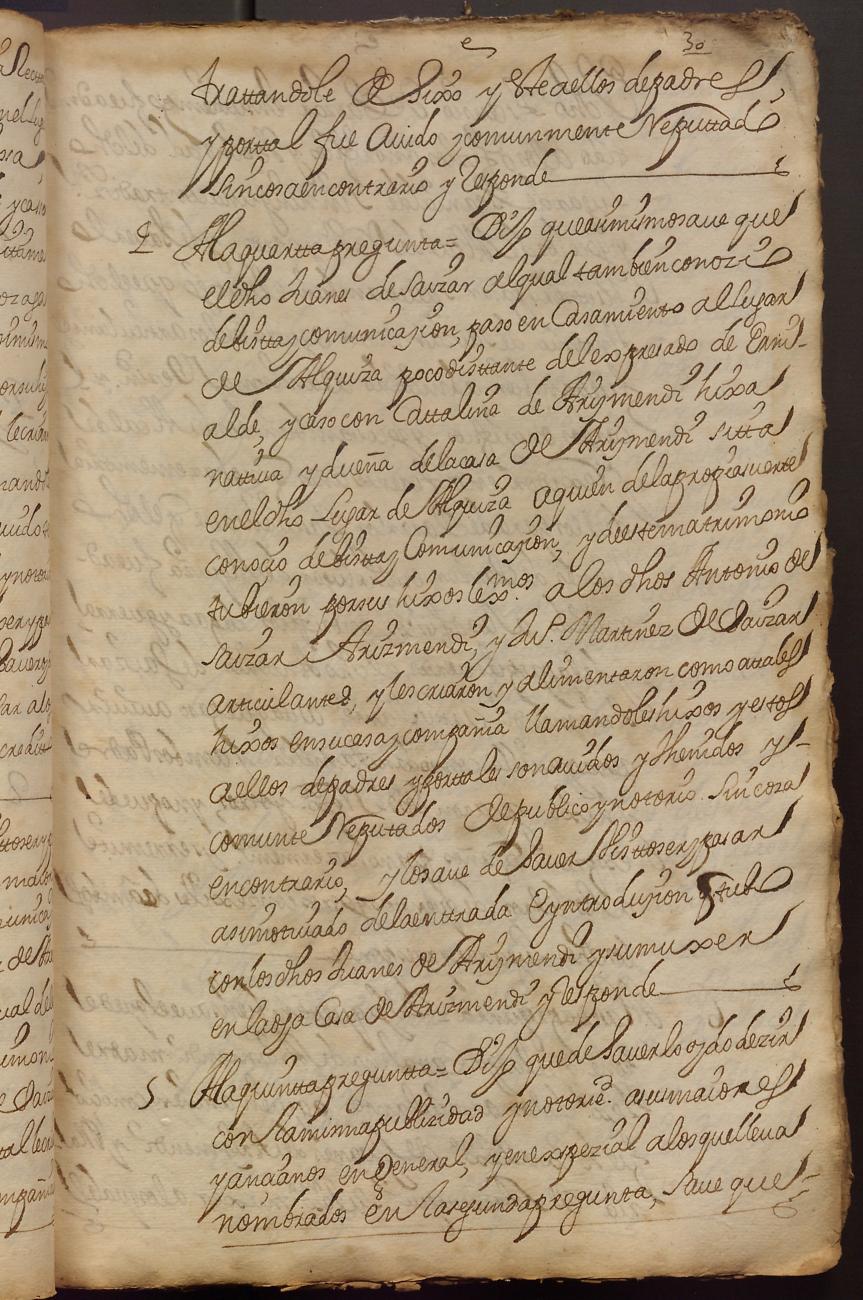 30
trattandole de hixo y este aellos de padres,
y por tal fue avido y comunmente Reputtado
sin cosa en contrario y Responde
Ala quartta pregunta = Dijo que asimismo save que
el dho Juanes de Saizar al qual tambien conozio
de bistta y comunicazion, paso en Casamiento al lugar
de Alquiza poco disttante del expresado de Erni-
alde, y caso con Cattalina de Arizmendi hixa
nattiva y dueña de la casa de Arizmendi sitta
en el dho Lugar de Alquiza aquien de la propia suerte
conocio de bistta y Comunicazion, y de este matrimonio
tubieron por sus hixos lexmos. a los dhos Antonio de
Saizar i Arizmendi, y Martinez de Saizar
articulantes, y les criaron y alimentaron como a tales
hixos en su casa y compañia llamandoles hixos y estos
aellos de padres y por tales son avidos y thenidos y-
comunte Reputados de publico y notorio sin cosa
en contrario, y lo save de haver visto ser y pasar
asi motivado de la entrada e yntroduzion q tubo
con los dhos Juanes de Arizmendi y su muxer
en la dha Casa de Arizmendi y Responde
5 Ala quintta preguntta = Dijo que de haverlo oydo dezir
con la misma publizidad y notoried. a sus maiores
y anzianos en General, y en expezial a los que lleva
nombrados en la segunda pregunta, save que-